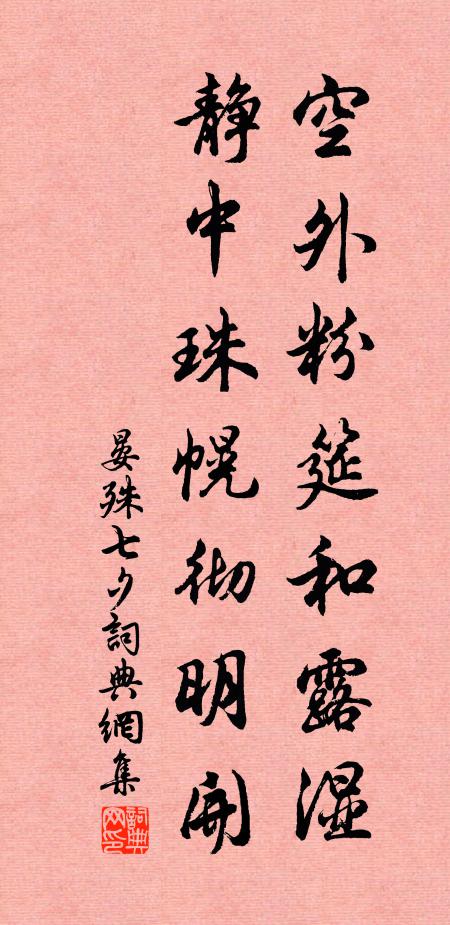 空外粉筵和露湿
静中珠幌彻明開
晏殊七夕詞典網集
詞典网印